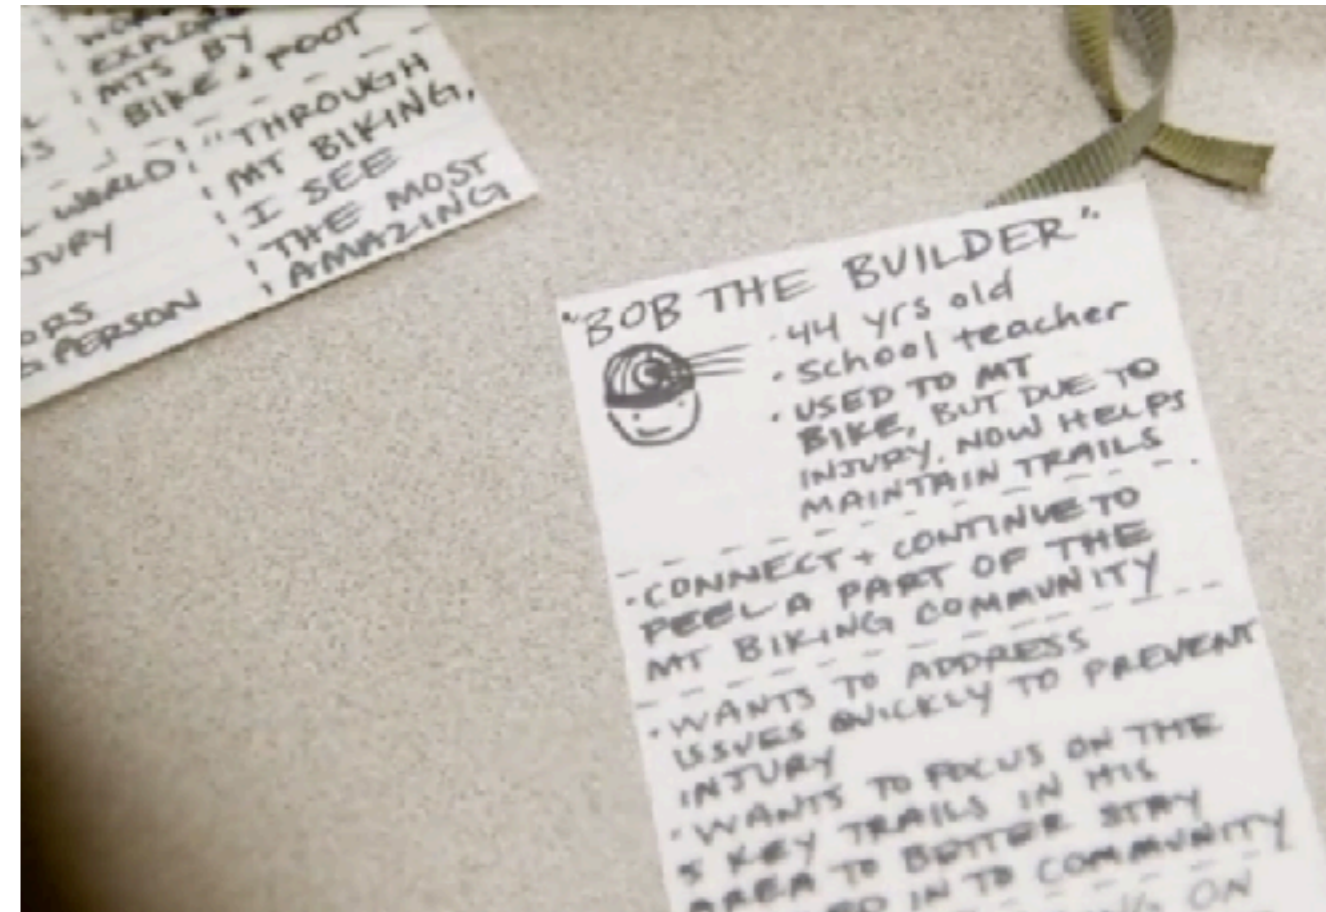 EXPLORE
MTS BY
BIKE + FOOT
"THROUGH
MT BIKING,
I SEE
THE MOST
AMAZING
WORLD
PERSON
"BOB THE BUILDER"
· 44 yrs old
· School teacher
· USED TO MT
BIKE, BUT DUE TO
INJURY, NOW HELPS
MAINTAIN TRAILS
· CONNECT + CONTINUE TO
FEEL A PART OF THE
MT BIKING COMMUNITY
· WANTS TO ADDRESS
ISSUES QUICKLY TO PREVENT
INJURY
· WANTS TO FOCUS ON THE
5 KEY TRAILS IN HIS
AREA TO BETTER STAY
IN TO COMMUNITY
ON